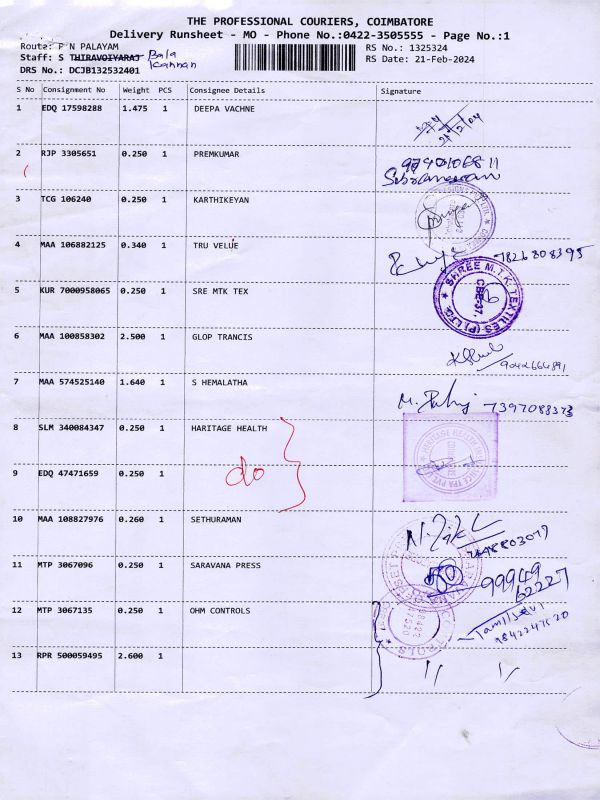 THE PROFESSIONAL COURIERS, COIMBATORE
Delivery Runsheet - MO - Phone No.:0422-3505555 - Page No.:1
Route: P N PALAYAM
RS No.: 1325324
Staff: S THIRAVOIYARAJ Bala Kannan
RS Date: 21-Feb-2024
DRS No.: DCJB132532401
S No Consignment No Weight PCS Consignee Details Signature
1 EDQ 17598288 1.475 1 DEEPA VACHNE
2 RJP 3305651 0.250 1 PREMKUMAR
3 TCG 106240 0.250 1 KARTHIKEYAN
4 MAA 106882125 0.340 1 TRU VELUE 7826808395
5 KUR 7000958065 0.250 1 SRE MTK TEX SHREE M.T.K. TEXTILES (P) LTD. CBE-37.
6 MAA 100858302 2.500 1 GLOP TRANCIS
7 MAA 574525140 1.640 1 S HEMALATHA 7397088373
8 SLM 340084347 0.250 1 HARITAGE HEALTH
do
9 EDQ 47471659 0.250 1
10 MAA 108827976 0.260 1 SETHURAMAN
11 MTP 3067096 0.250 1 SARAVANA PRESS 99949 62227
12 MTP 3067135 0.250 1 OHM CONTROLS Tamilselvi
13 RPR 500059495 2.600 1